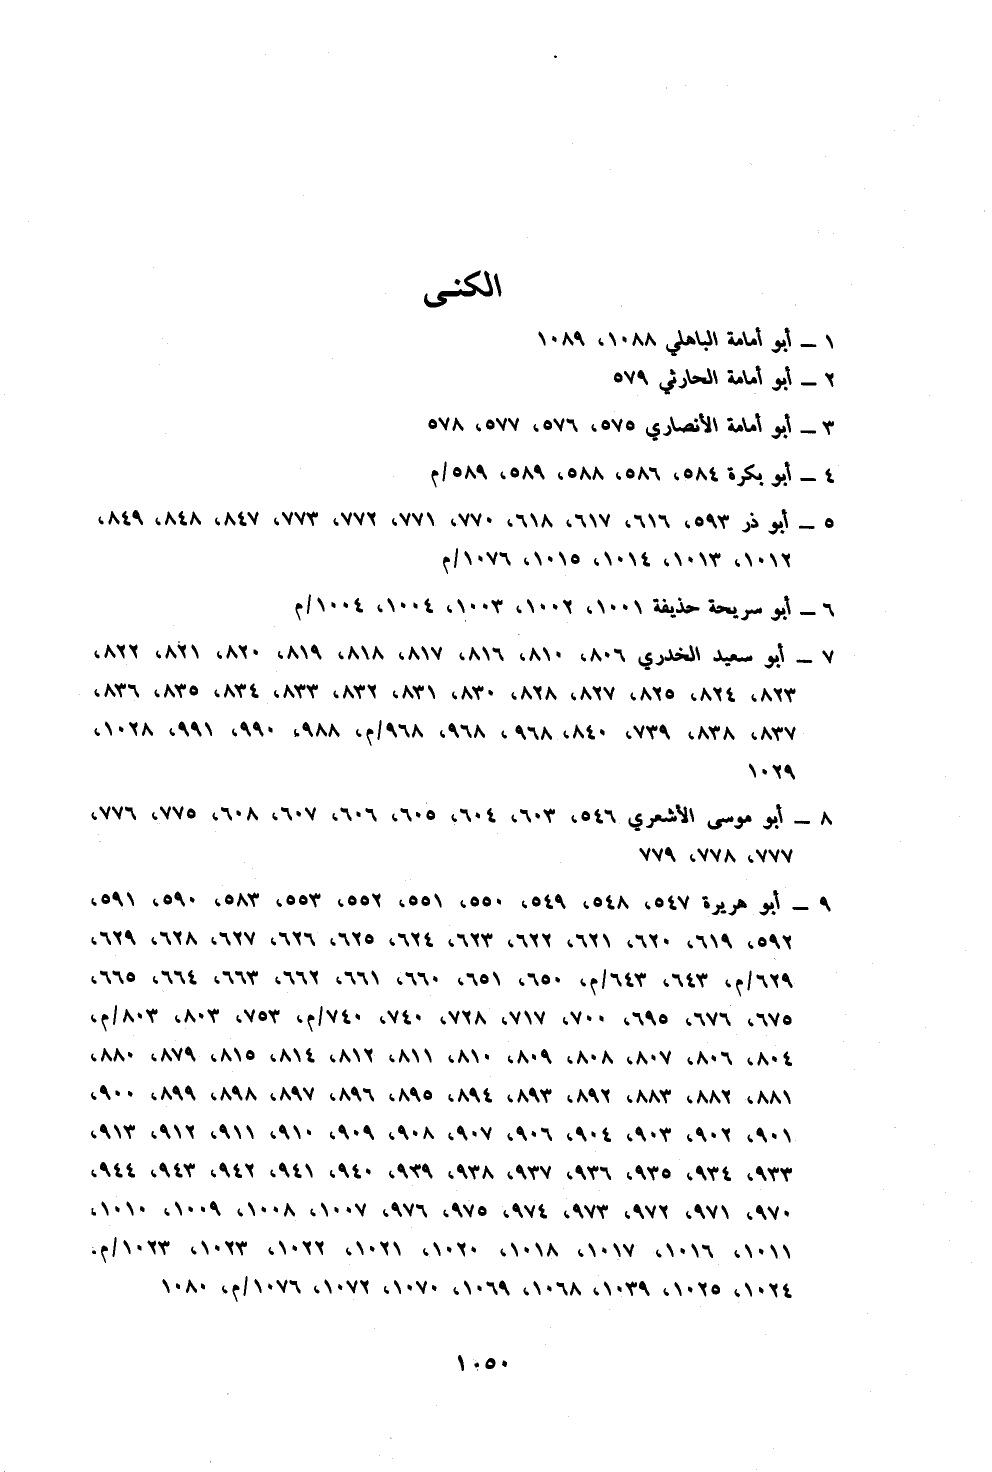 الكنـى
١ ــ أبو أمامة الباهلي ١٠٨٨، ١٠٨٩
٢ ــ أبو أمامة الحارثي ٥٧٩
٣ ــ أبو أمامة الأنصاري ٥٧٥، ٥٧٦، ٥٧٧، ٥٧٨
٤ ــ أبو بكرة ٥٨٤، ٥٨٦، ٥٨٨، ٥٨٩، ٥٨٩/م
٥ ــ أبو ذر ٥٩٣، ٦١٦، ٦١٧، ٦١٨، ٧٧٠، ٧٧١، ٧٧٢، ٧٧٣، ٨٤٧، ٨٤٨، ٨٤٩،
١٠١٢، ١٠١٣، ١٠١٤، ١٠١٥، ١٠٧٦/م
٦ ــ أبو سريحة حذيفة ١٠٠١، ١٠٠٢، ١٠٠٣، ١٠٠٤، ١٠٠٤/م
٧ ــ أبو سعيد الخدري ٨٠٦، ٨١٠، ٨١٦، ٨١٧، ٨١٨، ٨١٩، ٨٢٠، ٨٢١، ٨٢٢،
٨٢٣، ٨٢٤، ٨٢٥، ٨٢٧، ٨٢٨، ٨٣٠، ٨٣١، ٨٣٢، ٨٣٣، ٨٣٤، ٨٣٥، ٨٣٦،
٨٣٧، ٨٣٨، ٧٣٩، ٨٤٠، ٩٦٨، ٩٦٨، ٩٦٨/م، ٩٨٨، ٩٩٠، ٩٩١، ١٠٢٨،
١٠٢٩
٨ ــ أبو موسى الأشعري ٥٤٦، ٦٠٣، ٦٠٤، ٦٠٥، ٦٠٦، ٦٠٧، ٦٠٨، ٧٧٥، ٧٧٦،
٧٧٧، ٧٧٨، ٧٧٩
٩ ــ أبو هريرة ٥٤٧، ٥٤٨، ٥٤٩، ٥٥٠، ٥٥١، ٥٥٢، ٥٥٣، ٥٨٣، ٥٩٠، ٥٩١،
٥٩٢، ٦١٩، ٦٢٠، ٦٢١، ٦٢٢، ٦٢٣، ٦٢٤، ٦٢٥، ٦٢٦، ٦٢٧، ٦٢٨، ٦٢٩،
٦٢٩/م، ٦٤٣، ٦٤٣/م، ٦٥٠، ٦٥١، ٦٦٠، ٦٦١، ٦٦٢، ٦٦٣، ٦٦٤، ٦٦٥،
٦٧٥، ٦٧٦، ٦٩٥، ٧٠٠، ٧١٧، ٧٢٨، ٧٤٠، ٧٤٠/م، ٧٥٣، ٨٠٣، ٨٠٣/م،
٨٠٤، ٨٠٦، ٨٠٧، ٨٠٨، ٨٠٩، ٨١٠، ٨١١، ٨١٢، ٨١٤، ٨١٥، ٨٧٩، ٨٨٠،
٨٨١، ٨٨٢، ٨٨٣، ٨٩٢، ٨٩٣، ٨٩٤، ٨٩٥، ٨٩٦، ٨٩٧، ٨٩٨، ٨٩٩، ٩٠٠،
٩٠١، ٩٠٢، ٩٠٣، ٩٠٤، ٩٠٦، ٩٠٧، ٩٠٨، ٩٠٩، ٩١٠، ٩١١، ٩١٢، ٩١٣،
٩٣٣، ٩٣٤، ٩٣٥، ٩٣٦، ٩٣٧، ٩٣٨، ٩٣٩، ٩٤٠، ٩٤١، ٩٤٢، ٩٤٣، ٩٤٤،
٩٧٠، ٩٧١، ٩٧٢، ٩٧٣، ٩٧٤، ٩٧٥، ٩٧٦، ١٠٠٧، ١٠٠٨، ١٠٠٩، ١٠١٠،
١٠١١، ١٠١٦، ١٠١٧، ١٠١٨، ١٠٢٠، ١٠٢١، ١٠٢٢، ١٠٢٣، ١٠٢٣/م.
١٠٢٤، ١٠٢٥، ١٠٣٩، ١٠٦٨، ١٠٦٩، ١٠٧٠، ١٠٧٢، ١٠٧٦/م، ١٠٨٠
١٠٥٠